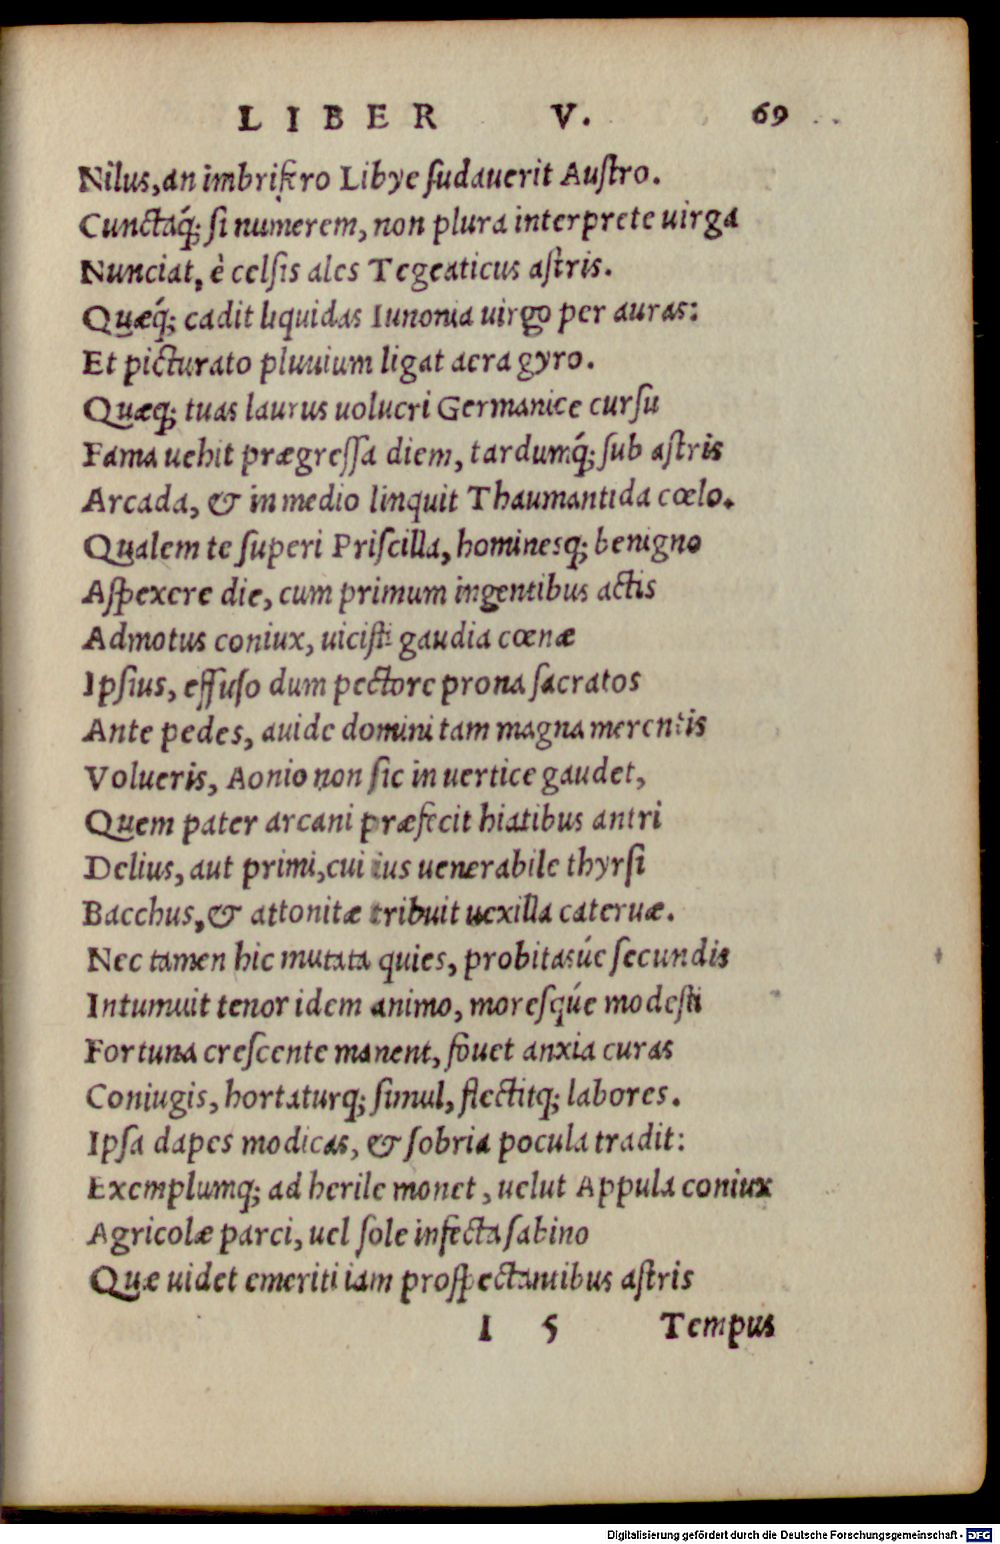 LIBER V. 69
Nilus, an imbrifero Libye sudauerit Austro.
Cunctaq́; si numerem, non plura interprete uirga
Nunciat, è celsis ales Tegeaticus astris.
Quæq́; cadit liquidas Iunonia uirgo per auras:
Et picturato pluuium ligat aera gyro.
Quæq; tuas laurus uolucri Germanice cursu
Fama uehit prægressa diem, tardumq́; sub astris
Arcada, & in medio linquit Thaumantida cœlo.
Qualem te superi Priscilla, hominesq; benigno
Aspexere die, cum primum ingentibus actis
Admotus coniux, uicisti gaudia cœnæ
Ipsius, effuso dum pectore prona sacratos
Ante pedes, auide domini tam magna merentis
Volueris, Aonio non sic in uertice gaudet,
Quem pater arcani præfecit hiatibus antri
Delius, aut primi, cui ius uenerabile thyrsi
Bacchus, & attonitæ tribuit uexilla cateruæ.
Nec tamen hic mutata quies, probitasúe secundis
Intumuit tenor idem animo, moresqúe modesti
Fortuna crescente manent, fouet anxia curas
Coniugis, hortaturq; simul, flectitq; labores.
Ipsa dapes modicas, & sobria pocula tradit:
Exemplumq; ad herile monet, uelut Appula coniux
Agricolæ parci, uel sole infecta sabino
Quæ uidet emeriti iam prospectantibus astris
I 5 Tempus
Digitalisierung gefördert durch die Deutsche Forschungsgemeinschaft - DFG